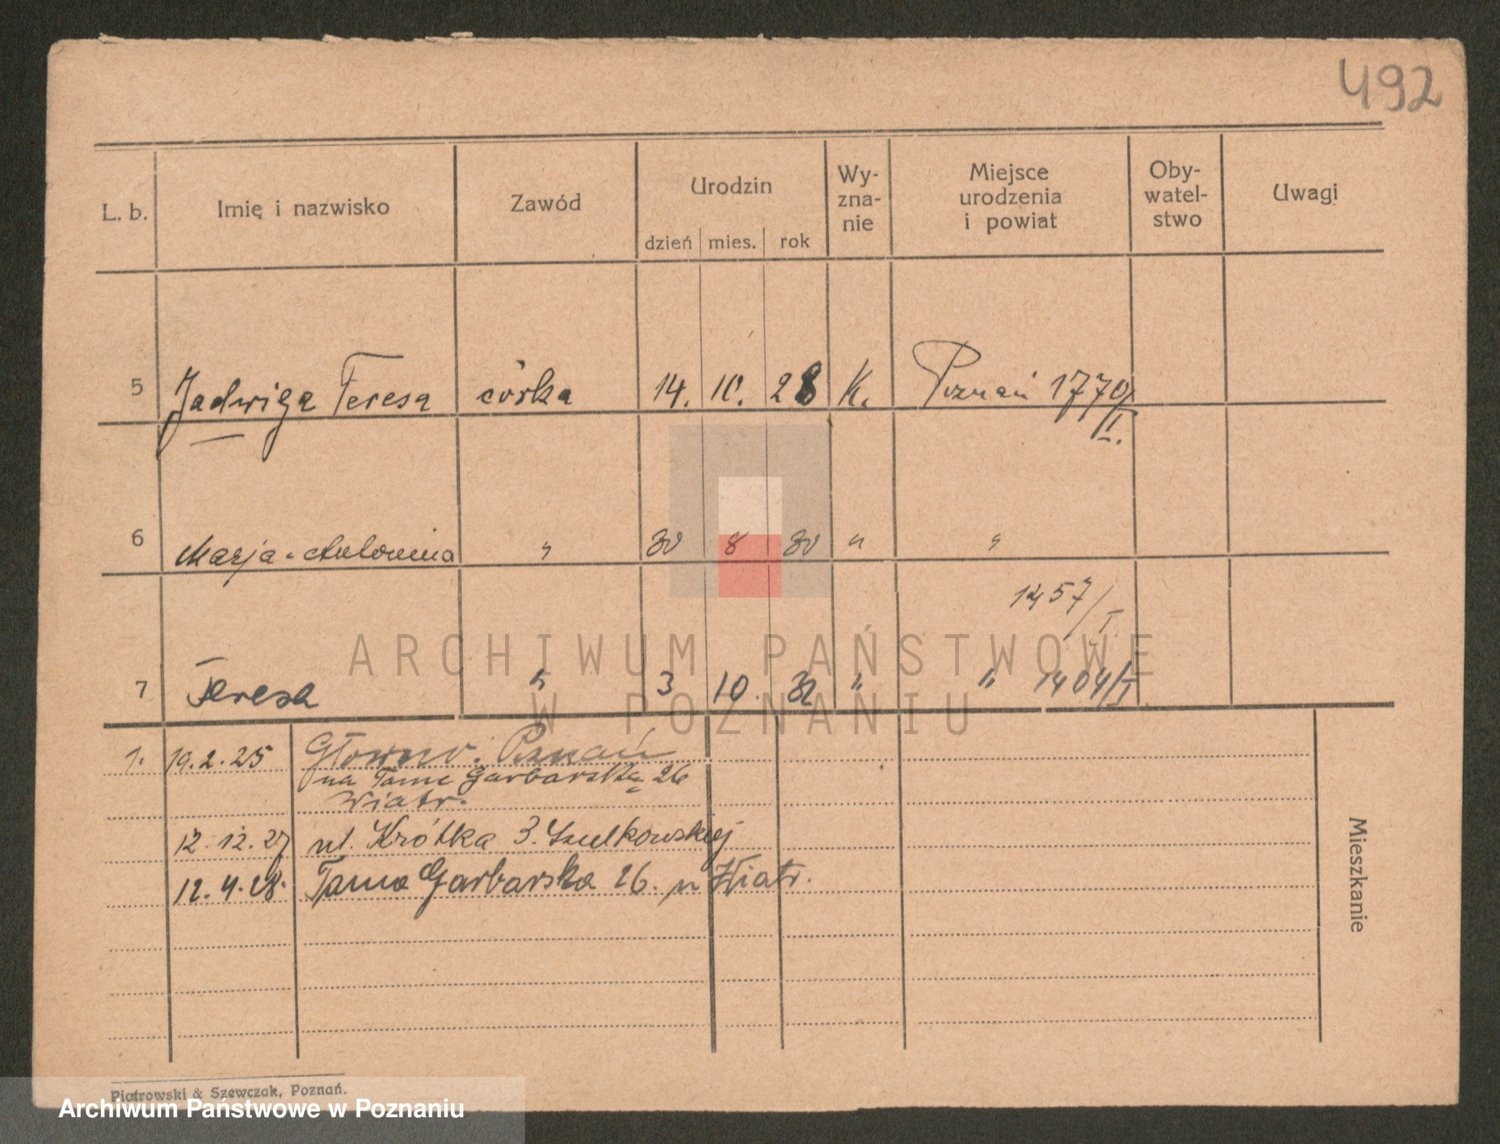 492
L. b. Imię i nazwisko Zawód Urodzin dzień mies. rok Wy-zna-nie Miejsce urodzenia i powiat Oby-watel-stwo Uwagi
5 Jadwiga Teresa córka 14. 10. 28 K. Poznań 1770/II.
6 Marja-Antonina " 30 8 30 " "
1257/I
7 Teresa " 3 10. 32 " " 1404/I
1. 19.2.25 Główno. Poznań
na Tama Garbarska 26
Wiatr.
12.12.27 ul. Krótka 3. Szulkowskiej
12.4.28. Tama Garbarska 26. u Wiatr.
Mieszkanie
Piotrowski & Szewczak, Poznań.
ARCHIWUM PAŃSTWOWE
W POZNANIU
Archiwum Państwowe w Poznaniu